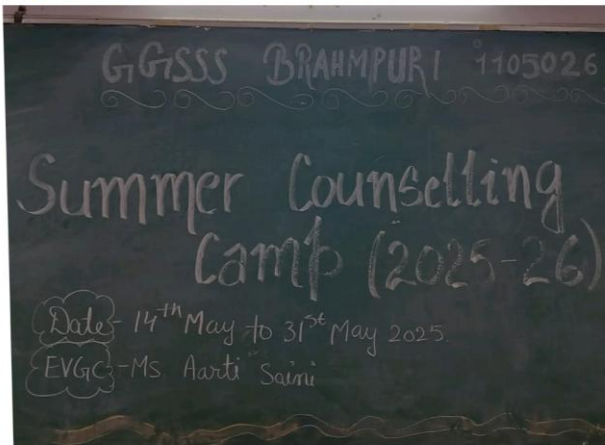 GGSSS BRAHMPURI 1105026
Summer Counselling
Camp (2025-26)
Date - 14th May to 31st May 2025.
EVGC - Ms Aarti Saini